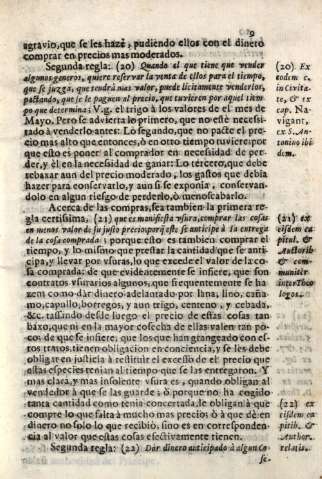 9
agravio, que se les haze, pudiendo ellos con el dinero
comprar en precios mas moderados.
Segunda regla: (20) Quando el que tiene que vender
algunos generos, quiere reservar la venta de ellos para el tiempo,
que se juzga, que tendrà mas valor, puede licitamente venderlos,
pactando, que se le paguen al precio, que tuvieren por aquel tiem-
po que determina; V.g. el trigo à los valores de el mes de
Mayo. Pero se advierta lo primero, que no estè necessi-
tado à venderlo antes: Lo segundo, que no pacte el pre-
cio mas alto que entonces, ò en otro tiempo tuviere; por
que esto es poner al comprador en necessidad de per-
der, y èl en la necessidad de ganar: Lo tercero, que debe
rebaxar aun del precio moderado, los gastos que debia
hazer para conservarlo, y aun si se exponia, conservan-
dolo en algun riesgo de perderlo, ò menoscabarlo.
Acerca de las compras, sea tambien la primera re-
gla certissima, (21) que es manifiesta usura, comprar las cosas
en menos valor de su justo precio; porque este se anticipe à la entrega
de la cosa comprada; porque esto es tambien comprar el
tiempo, y lo mismo que prestar la cantidad que se anti-
cipa, y llevar por usuras, lo que excede el valor de la co-
sa comprada: de que evidentemente se infiere, que son
contratos usurarios algunos, que frequentemente se ha-
zen como dar dinero adelantado por lana, lino, caña-
mo, capullo, borregos, y aun trigo, centeno, y cebada,
&c. tassando desde luego el precio de estas cosas tan
baxo, que ni en la mayor cosecha de ellas valen tan po-
co: de que se infiere, que los que han grangeado con es-
tos tratos tienen obligacion en conciencia, y se les debe
obligar en justicia à restituir el excesso de el precio que
estas especies tenian al tiempo que se las entregaron. Y
mas clara, y mas insolente usura es, quando obligan al
vendedor à que se las guarde; ò porque no ha cogido
tanta cantidad como tenia concertada, le obligan à que
compre lo que falta à mucho mas precios ò à que dè en
dinero no solo lo que recibiò, sino es en corresponden-
cia al valor que estas cosas efectivamente tienen.
Segunda regla: (22) Dar dinero anticipado à algun Co
se,
(20) Ex
eodem c.
in Civita-
te, & ex
cap. Na-
vigant,
ex S. An-
tonino ibi
dem.
(21) ex
eisdem ca
pitul. &
Authorib
& com-
muniter
inter Theo
logos.
(22) ex
eisdem ca
pitib. &
Author.
relatis.